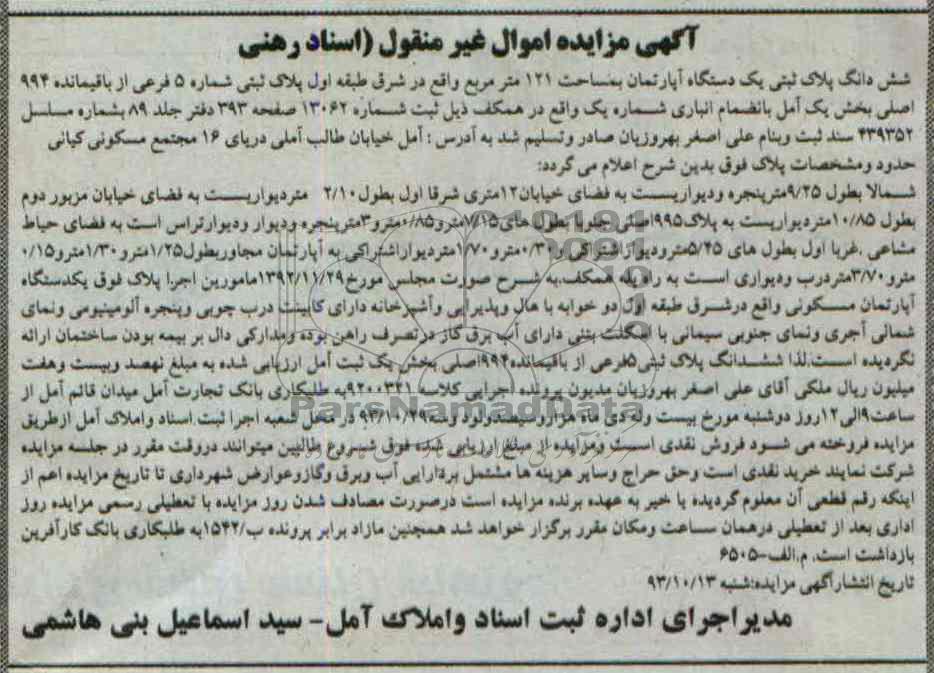 آگهی مزایده اموال غیر منقول (اسناد رهنی
شش دانگ پلاک ثبتی یک دستگاه آپارتمان بمساحت ۱۲۱ متر مربع واقع در شرق طبقه اول پلاک ثبتی شماره ۵ فرعی از باقیمانده ۹۹۴
اصلی بخش یک آمل بانضمام انباری شماره یک واقع در همکف ذیل ثبت شماره ۱۳۰۶۲ صفحه ۳۹۳ دفتر جلد ۸۹ بشماره مسلسل
۴۳۹۳۵۲ سند ثبت وبنام علی اصغر بهروزیان صادر وتسلیم شد به آدرس : آمل خیابان طالب آملی دریای ۱۶ مجتمع مسکونی کیانی
حدود ومشخصات پلاک فوق بدین شرح اعلام می گردد:
شمالا بطول ۹/۲۵مترپنجره ودیواریست به فضای خیابان۱۲متری شرقا اول بطول۲/۱۰ متردیواریست به فضای خیابان مزبور دوم
بطول ۱۰/۸۵متردیواریست به پلاک۹۹۵اصلی جنوبا بطول های۷/۱۵مترو۰/۸۵مترو۳مترپنجره ودیوار ودیوارتراس است به فضای حیاط
مشاعی .غربا اول بطول های ۵/۴۵مترودیواراشتراکی و۰/۳۰مترو۱/۷۰متردیواراشتراکی به آپارتمان مجاوربطول۱/۲۵مترو۱/۳۰مترو۰/۱۵
مترو۳/۷۰متردرب ودیواری است به راه پله همکف.به شرح صورت مجلس مورخ۱۳۹۲/۱۱/۲۹مامورین اجرا پلاک فوق یکدستگاه
آپارتمان مسکونی واقع درشرق طبقه اول دو خوابه با هال وپذیرایی وآشپزخانه دارای کابینت درب چوبی وپنجره آلومینیومی ونمای
شمالی آجری ونمای جنوبی سیمانی با اسکلت بتنی دارای آب برق گاز درتصرف راهن بوده ومدارکی دال بر بیمه بودن ساختمان ارائه
نگردیده است.لذا ششدانگ پلاک ثبتی۵فرعی از باقیمانده۹۹۴اصلی بخش یک ثبت آمل ارزیابی شده به مبلغ نهصد وبیست وهفت
میلیون ریال ملکی آقای علی اصغر بهروزیان مدیون پرونده اجرایی کلاسه ۹۲۰۰۳۴۱به طلبکاری بانک تجارت آمل میدان قائم آمل از
ساعت۹الی۱۲روز دوشنبه مورخ بیست ونه دی ماه هزاروسیصدونود وسه۹۳/۱۰/۲۹ در محل شعبه اجرا ثبت اسناد واملاک آمل ازطریق
مزایده فروخته می شود فروش نقدی است ومزایده از مبلغ ارزیابی شده فوق شروع طالبین میتوانند دروقت مقرر در جلسه مزایده
شرکت نمایند خرید نقدی است وحق حراج وسایر هزینه ها مشتمل بردارایی آب وبرق وگازوعوارض شهرداری تا تاریخ مزایده اعم از
اینکه رقم قطعی آن معلوم گردیده یا خیر به عهده برنده مزایده است درصورت مصادف شدن روز مزایده با تعطیلی رسمی مزایده روز
اداری بعد از تعطیلی درهمان ساعت ومکان مقرر برگزار خواهد شد همچنین مازاد برابر پرونده ب/۱۵۴۲به طلبکاری بانک کارآفرین
بازداشت است. م.الف-۶۵۰۵
تاریخ انتشارآگهی مزایده:شنبه ۹۳/۱۰/۱۳
مدیراجرای اداره ثبت اسناد واملاک آمل- سید اسماعیل بنی هاشمی
ParsNamadData